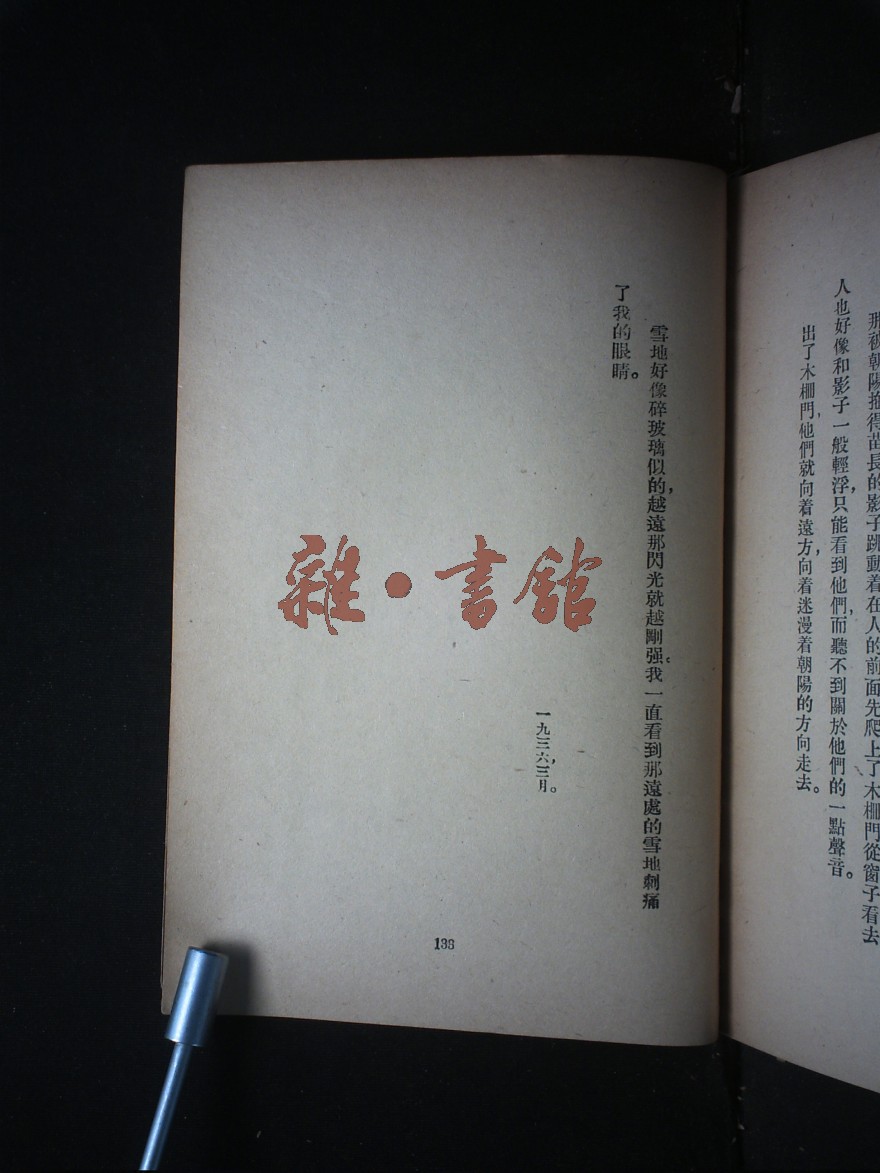 那被朝陽拖得苗長的影子，跳動着在人的前面先爬上了木柵門。從窗子看去，
人也好像和影子一般輕浮，只能看到他們，而聽不到關於他們的一點聲音。
出了木柵門，他們就向着遠方，向着迷漫着朝陽的方向走去。
雪地好像碎玻璃似的，越遠那閃光就越剛强。我一直看到那遠處的雪地刺痛
了我的眼睛。
一九三六，三月。
138
雜·書館